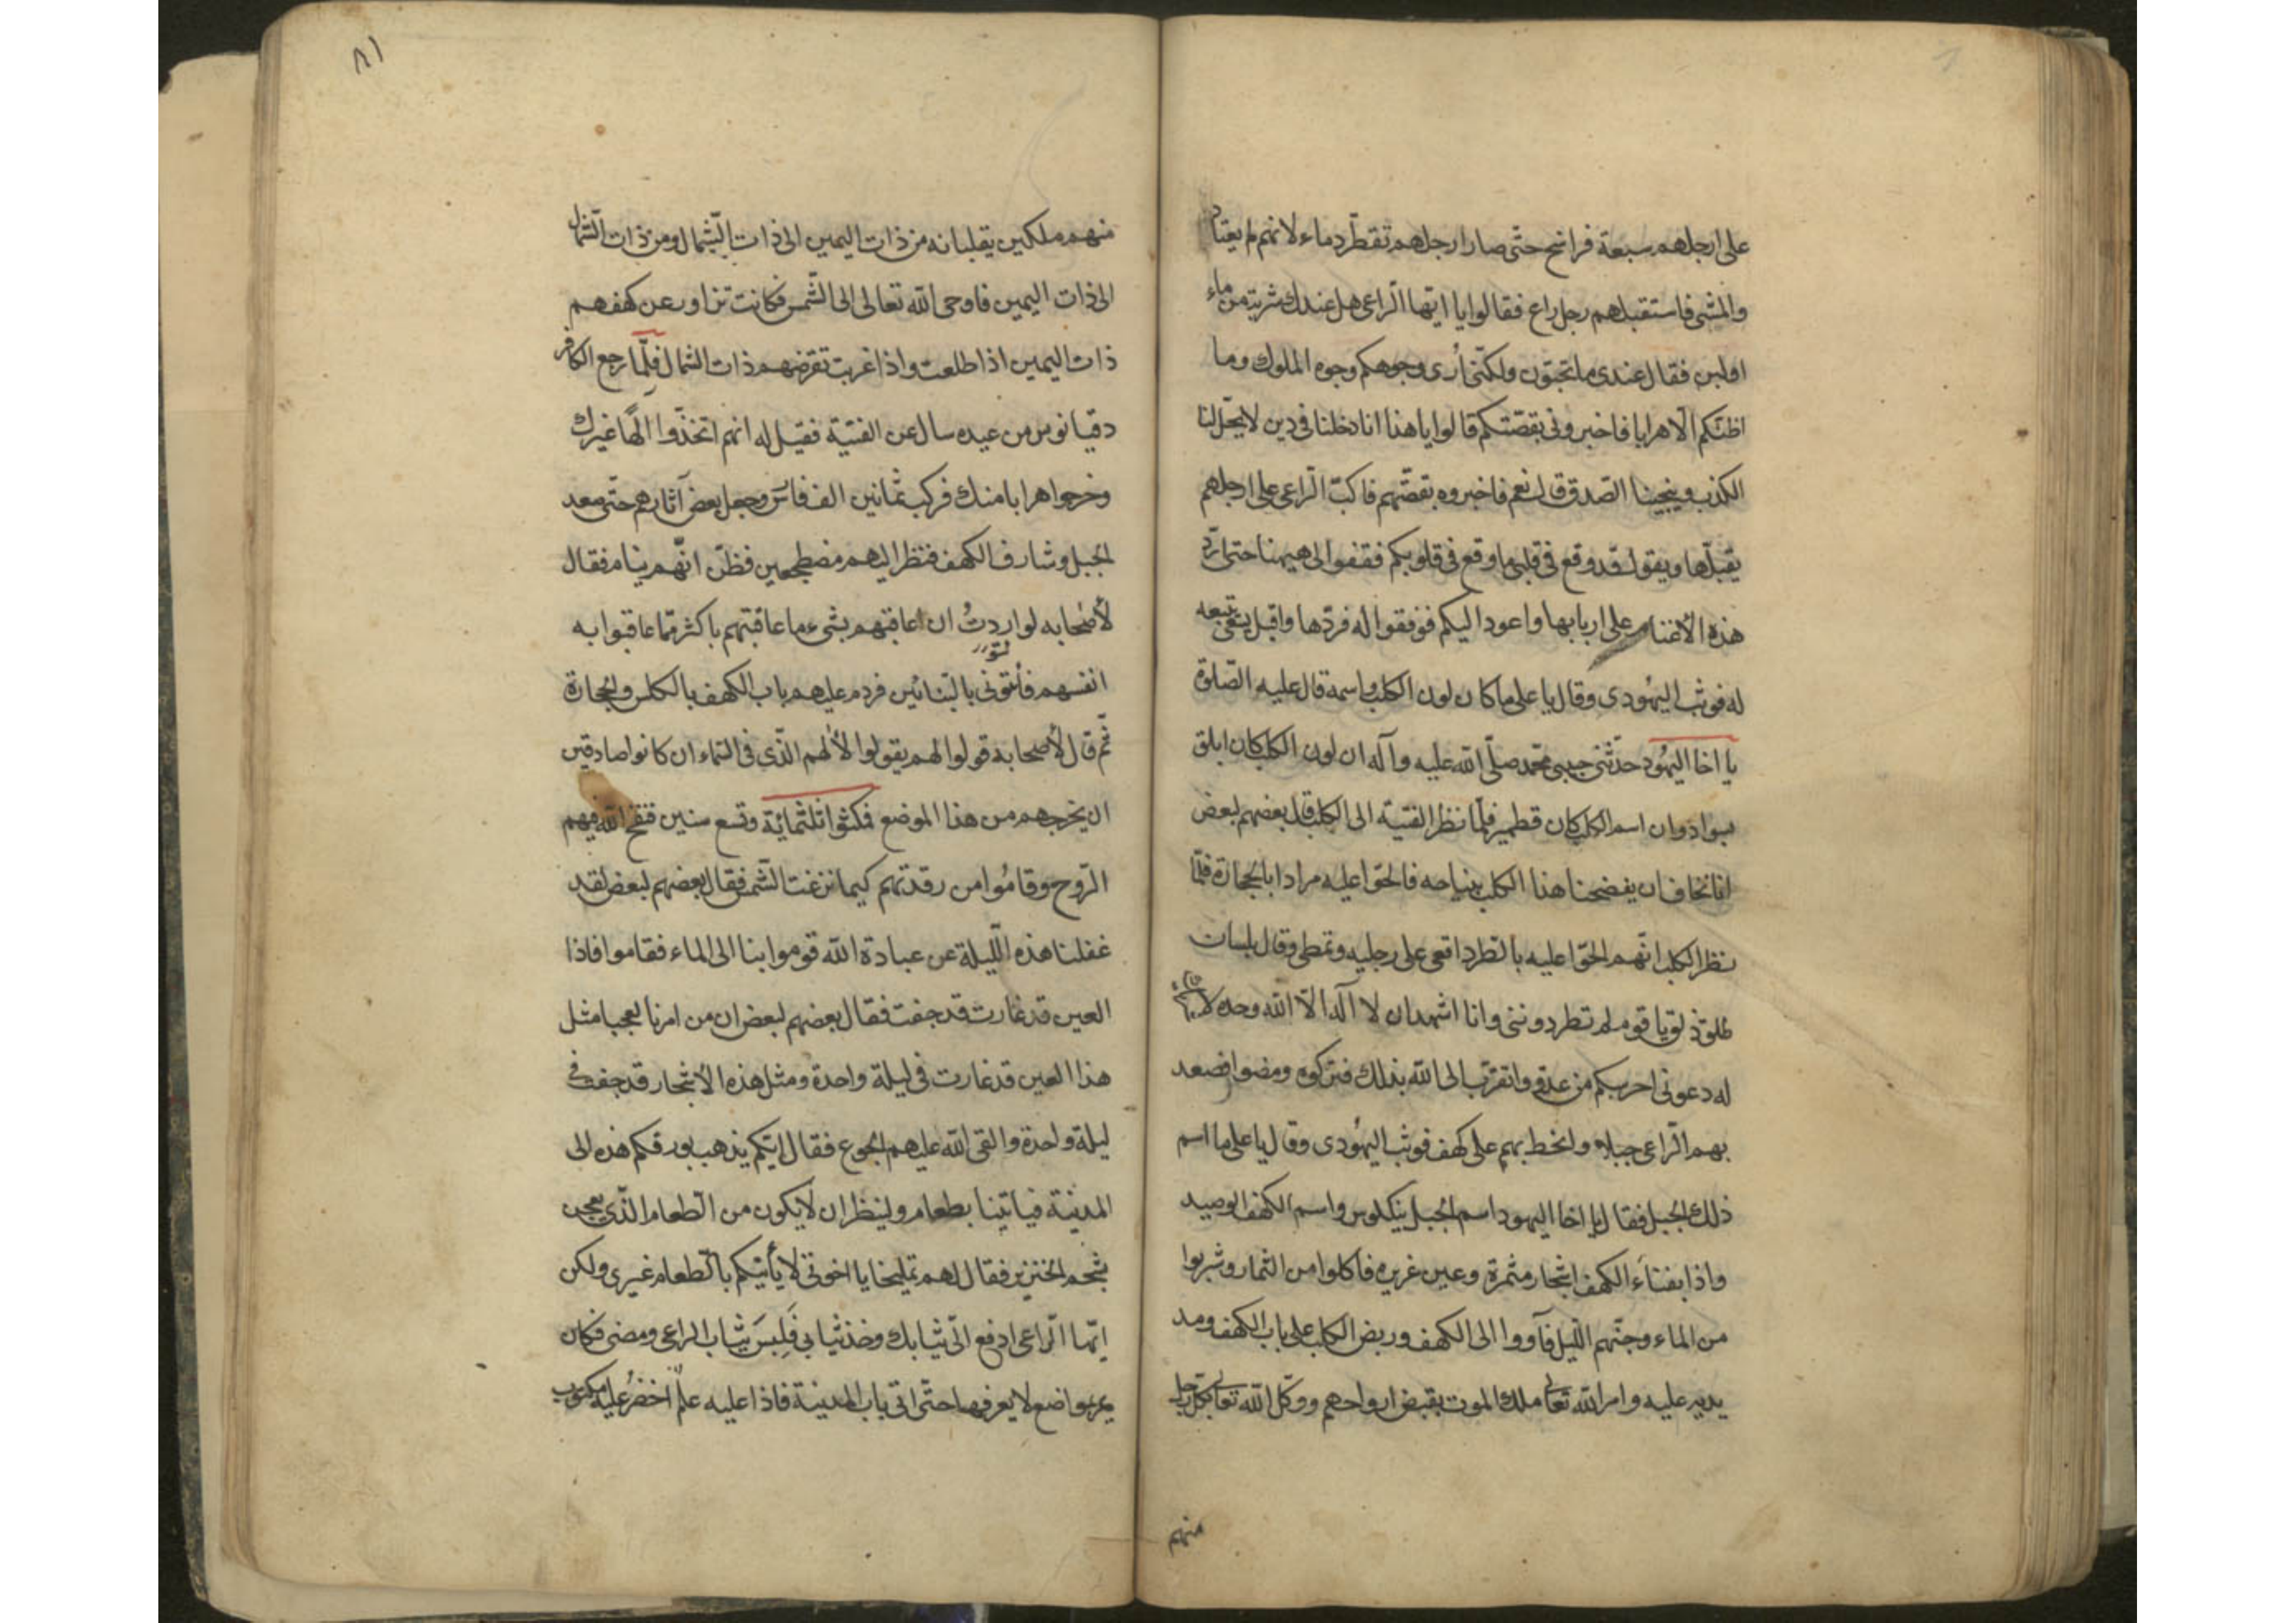 على ارجلهم سبعة فراسخ حتّى صار ارجلهم تقطّر دماء لانهم لم يعتادوا
والمشى فاستقبلهم رجل راع فقالوا يا ايّها الرّاعى هل عندك شربة من ماء
او لبن فقال عندى ما تحبّون ولكنّى أرى وجوهكم وجوه الملوك وما
اظنّكم الّا هرابا فاخبرونى بقصّتكم قالوا يا هذا انا دخلنا فى دين لا يحلّ لنا
الكذب وينجينا الصّدق قال نعم فاخبروه بقصّتهم فاكبّ الرّاعى على ارجلهم
يقبّلها ويقول قد وقع فى قلبى ما وقع فى قلوبكم فقفوا لى هيهنا حتى اردّ
هذه الأغنام على اربابها واعود اليكم فوقفوا له فردّها واقبل يسعى يتبعه
كلب له فوثب اليهُودى وقال يا على ما كان لون الكلب واسمه قال عليه الصّلوة
يا اخا اليهُود حدّثنى حبيبى محمّد صلّى الله عليه وآله ان لون الكلب كان ابلق
بسواد وان اسم الكلب كان قطمير فلمّا نظر الفتية الى الكلب قال بعضهم لبعض
انا نخاف ان يفضحنا هذا الكلب بنباحه فالحّوا عليه مرادا بالحجارة فلمّا
نظر الكلب انّهم الحّوا عليه بالطّرد اقعى على رجليه وتمطى وقال بلسان
طلق ذلق يا قوم لم تطردوننى وانا اشهد ان لا اله الّا الله وحده لا شريك
له دعونى احرسكم من عدوّ واتقرّب الى الله بذلك فتركوه ومضوا فصعد
بهم الرّاعى جبلا وانحط بهم على كهف فوثب اليهُودى وقال يا على ما اسم
ذلك الجبل فقال يا اخا اليهود اسم الجبل ينكلوس واسم الكهف الوصيد
واذا بفناء الكهف اشجار مثمرة وعين غزيره فاكلوا من الثمار وشربوا
من الماء وجنّهم اللّيل فآووا الى الكهف وربض الكلب على باب الكهف ومد
يديه عليه وامر الله تعالى ملك الموت بقبض ارواحهم ووكّل الله تعالى بكلّ رجل
منهم
٨١
منهم ملكين يقلبانه من ذات اليمين الى ذات الشّمال ومن ذات الشّمال
الى ذات اليمين فاوحى الله تعالى الى الشّمس فكانت تزاور عن كهفهم
ذات اليمين اذا طلعت واذا غربت تقرضهم ذات الشمال فلمّا رجع الكافر
دقيانوس من عيده سال عن الفتية فقيل له انهم اتّخذوا الٰهًا غيرك
وخرجوا هرابا منك فركب ثمانين الف فارس وجعل بعض آثارهم حتّى صعد
الجبل وشارف الكهف فنظر اليهم مضطجعين فظنّ انّهم نيام فقال
لأصحابه لو اردتُ ان اعاقبهم بشىء ما عاقبتهم باكثر ممّا عاقبوا به
انفسهم فأتونى بالبنائين فردم عليهم باب الكهف بالكلس والحجارة
ثمّ قال لأصحابه قولوا لهم يقولوا لألٰههم الّذى فى السّماء ان كانوا صادقين
ان يخرجهم من هذا الموضع فمكثوا ثلثمائة وتسع سنين فنفخ الله فيهم
الرّوح وقامُوا من رقدتهم كيما بزغت الشّمس فقال بعضهم لبعض لقد
غفلنا هذه اللّيلة عن عبادة الله قوموا بنا الى الماء فقاموا فاذا
العين قد غارت قد جفت فقال بعضهم لبعض ان من امرنا لعجبا مثل
هذا العين قد غارت فى ليلة واحدة ومثل هذه الأشجار قد جفت فى
ليلة واحدة والقى الله عليهم الجوع فقال ايّكم يذهب بورقكم هذه الى
المدينة فياتينا بطعام ولينظر ان لا يكون من الطّعام الّذى يعجن
بشحم الخنزير فقال لهم تمليخا يا اخوتى لا يأتيكم بالطّعام غيرى ولكن
ايّها الرّاعى ادفع الىّ ثيابك وخذ ثيابى فَلَبِسَ ثياب الراعى ومضى فكان
يمرّ بمواضع لا يعرفها حتّى اتى باب المدينة فاذا عليه علمٌ اخضرُ عليه مكتوب